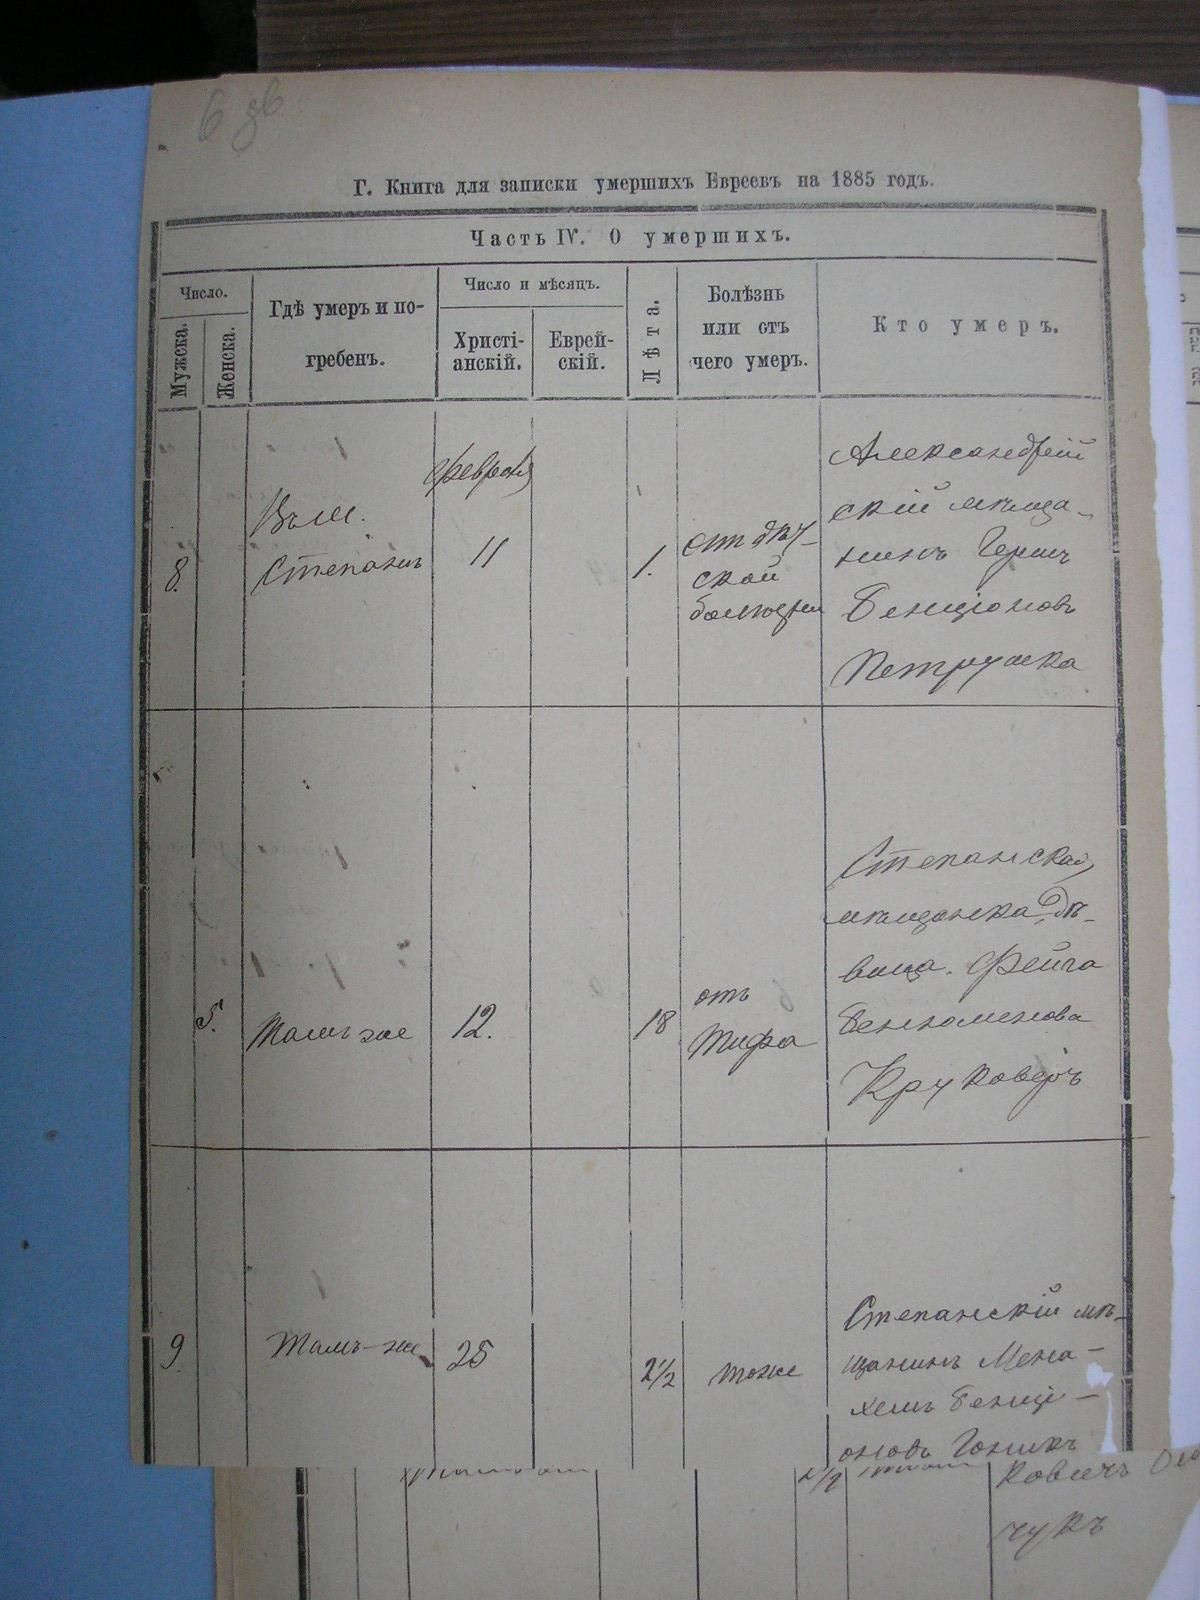 6 зв
Г. Книга для записки умершихъ Евреевъ на 1885 годъ.
Часть IV. О умершихъ.
Число.
Мужска.
Женска.
Гдѣ умеръ и по-
гребенъ.
Число и мѣсяцъ.
Христі-
анскій.
Еврей-
скій.
Лѣта.
Болѣзнь
или отъ
чего умеръ.
Кто умеръ.
8.
Въ м.
Степанѣ
февраля
11
1.
отъ дѣт-
ской
болѣзни
Александрій
скій мѣща-
нинъ Герш
Бенціоновъ
Петрушка
5.
Тамъ же
12.
18
отъ
тифа
Степанская
мѣщанка дѣ-
вица. Фейга
Беньоменова
Круковеръ
9
Тамъ-же
25
2 1/2
тоже
Степанскій мѣ-
щанинъ Мена-
хемъ Бенці-
оновъ Гоникъ
ковичъ
чукъ